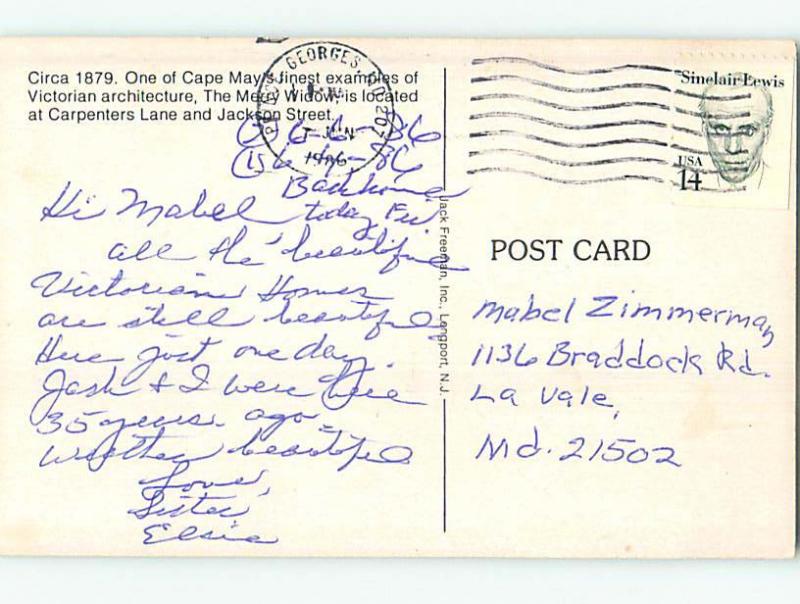 Circa 1879. One of Cape May's finest examples of
Victorian architecture, The Merry Widow, is located
at Carpenters Lane and Jackson Street.
GEORGES
JUN
1986
6-6-86
Back home
today Fri.
Hi Mabel
all the beautiful
Victorian Homes
are still beautiful
Here just one day.
Jack & I were here
35 years ago.
Weather beautiful
Love,
Sister
Elsie
Jack Freeman, Inc., Longport, N.J.
Sinclair Lewis
USA
14
POST CARD
Mabel Zimmerman
1136 Braddock Rd.
La Vale,
Md. 21502